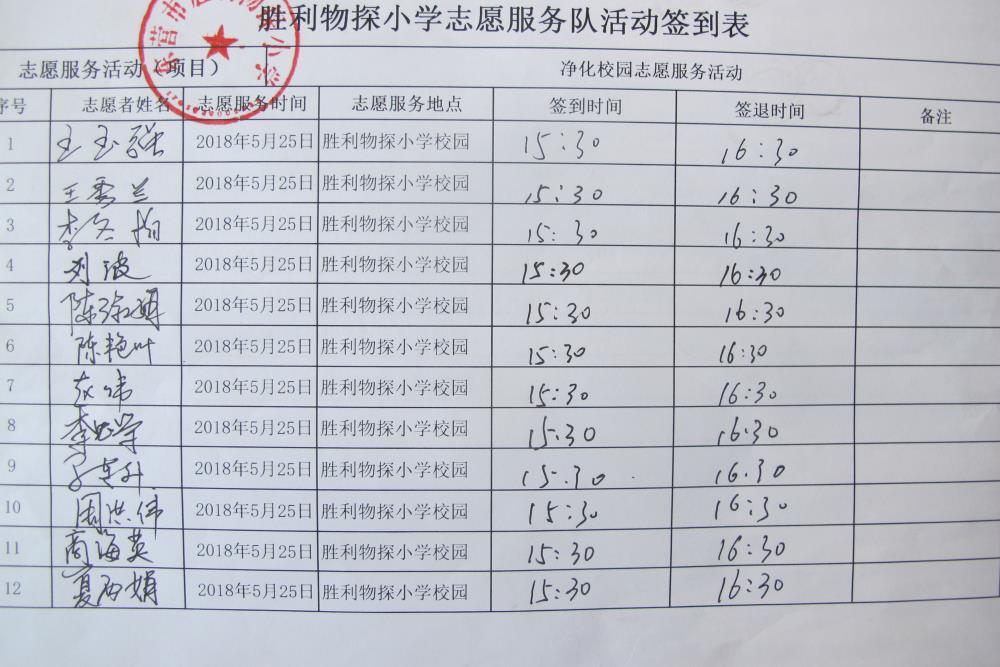 胜利物探小学志愿服务队活动签到表
志愿服务活动（项目） 净化校园志愿服务活动
序号 志愿者姓名 志愿服务时间 志愿服务地点 签到时间 签退时间 备注
1 王玉强 2018年5月25日 胜利物探小学校园 15:30 16:30
2 王秀兰 2018年5月25日 胜利物探小学校园 15:30 16:30
3 2018年5月25日 胜利物探小学校园 15:30 16:30
4 刘波 2018年5月25日 胜利物探小学校园 15:30 16:30
5 陈 2018年5月25日 胜利物探小学校园 15:30 16:30
6 陈艳叶 2018年5月25日 胜利物探小学校园 15:30 16:30
7 2018年5月25日 胜利物探小学校园 15:30 16:30
8 李 2018年5月25日 胜利物探小学校园 15:30 16:30
9 2018年5月25日 胜利物探小学校园 15:30 16:30
10 周洪伟 2018年5月25日 胜利物探小学校园 15:30 16:30
11 商海英 2018年5月25日 胜利物探小学校园 15:30 16:30
12 夏丽娟 2018年5月25日 胜利物探小学校园 15:30 16:30